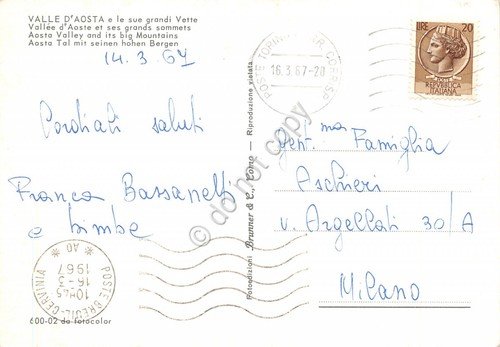 VALLE D'AOSTA e le sue grandi Vette
Vallée d'Aoste et ses grands sommets
Aosta Valley and its big Mountains
Aosta Tal mit seinen hohen Bergen
14.3 67
Cordiali saluti
Franca Bassanelli
e bimbe
POSTE BREUIL-CERVINIA
* AO *
10H45
16-3
1967
600-02 da fotocolor
Fotoedizioni Brunner & C., Como - Riproduzione vietata
POSTE TORINO
16.3.67-20
LIRE 20
REPVBBLICA
ITALIANA
Gent.ma Famiglia
Aschieri
v. Argellati 30/A
Milano
© do not copy